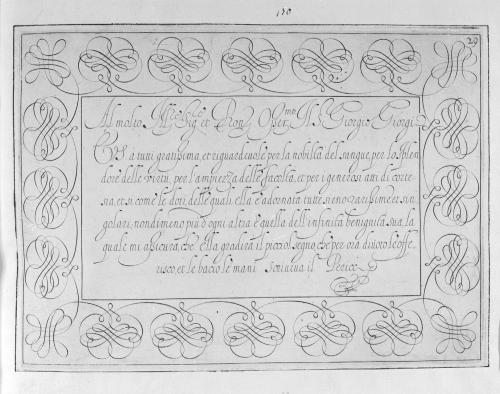 29
Al molto Ill.re Sig.re et Pron Oser.mo Il S. Giorgio Giorgi
V.S. a tutti gratissima, et riguardeuole per la nobiltà del sangue, per lo splen
dore delle virtù, per l'ampiezza delle facoltà, et per i generosi atti di corte-
sia, et si come le doti delle quali ella è adornata tutte sieno rarissime et sin
golari, nondimeno più d'ogni altra è quella dell'infinita benignità sua, la
quale mi assicura, che ella gradirà il picciol segno, che per ora diuoto le offe
risco, et le bacio le mani Scriueua il